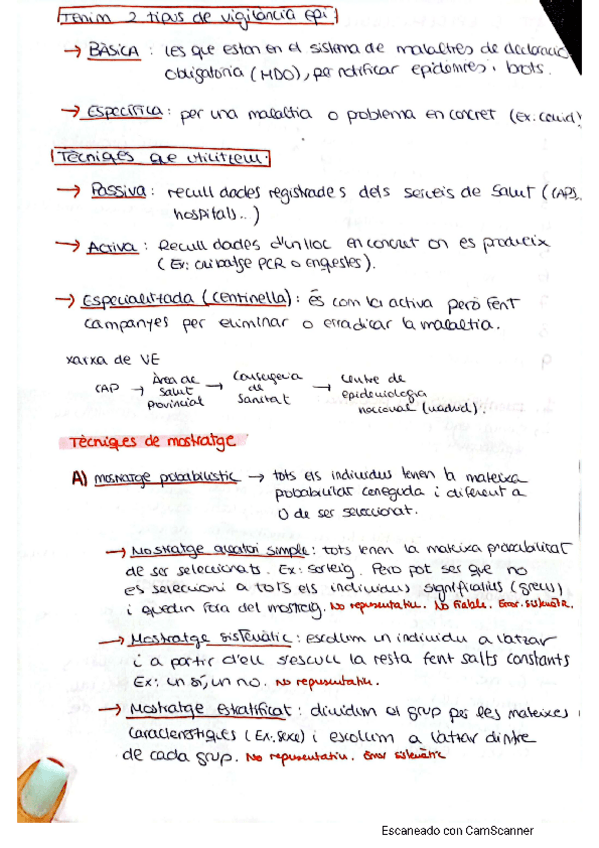 Tenim 2 tipus de vigilància epi:
→ BÀSICA : les que estan en el sistema de malalties de declaració
obligatòria (MDO), per notificar epidèmies i brots.
→ ESPECÍFICA : per una malaltia o problema en concret (Ex. covid)
Tècniques que utilitzem:
→ Passiva : recull dades registrades dels serveis de salut (CAPS,
hospitals...)
→ Activa : Recull dades d'un lloc en concret on es produeix
(Ex: cribatge PCR o enquestes).
→ Especialitzada (centinella) : és com la activa però fent
campanyes per eliminar o erradicar la malaltia.
xarxa de VE
CAP → Àrea de salut provincial → Conselleria de Sanitat → Centre de epidemiologia nacional (Madrid).
Tècniques de mostratge
A) mostratge probabilístic → tots els individus tenen la mateixa
probabilitat coneguda i diferent a
0 de ser seleccionat.
→ Mostratge aleatori simple : tots tenen la mateixa probabilitat
de ser seleccionats. Ex: sorteig. Però pot ser que no
es seleccioni a tots els individus significatius (greus)
i quedin fora del mostreig. No representatiu. No fiable. Error sistemàtic.
→ Mostratge sistemàtic : escollim un individu a l'atzar
i a partir d'ell s'escull la resta fent salts constants
Ex: un sí, un no. No representatiu.
→ Mostratge estratificat : dividim el grup per les mateixes
característiques (Ex: sexe) i escollim a l'atzar dintre
de cada grup. No representatiu. Error sistemàtic
Escaneado con CamScanner